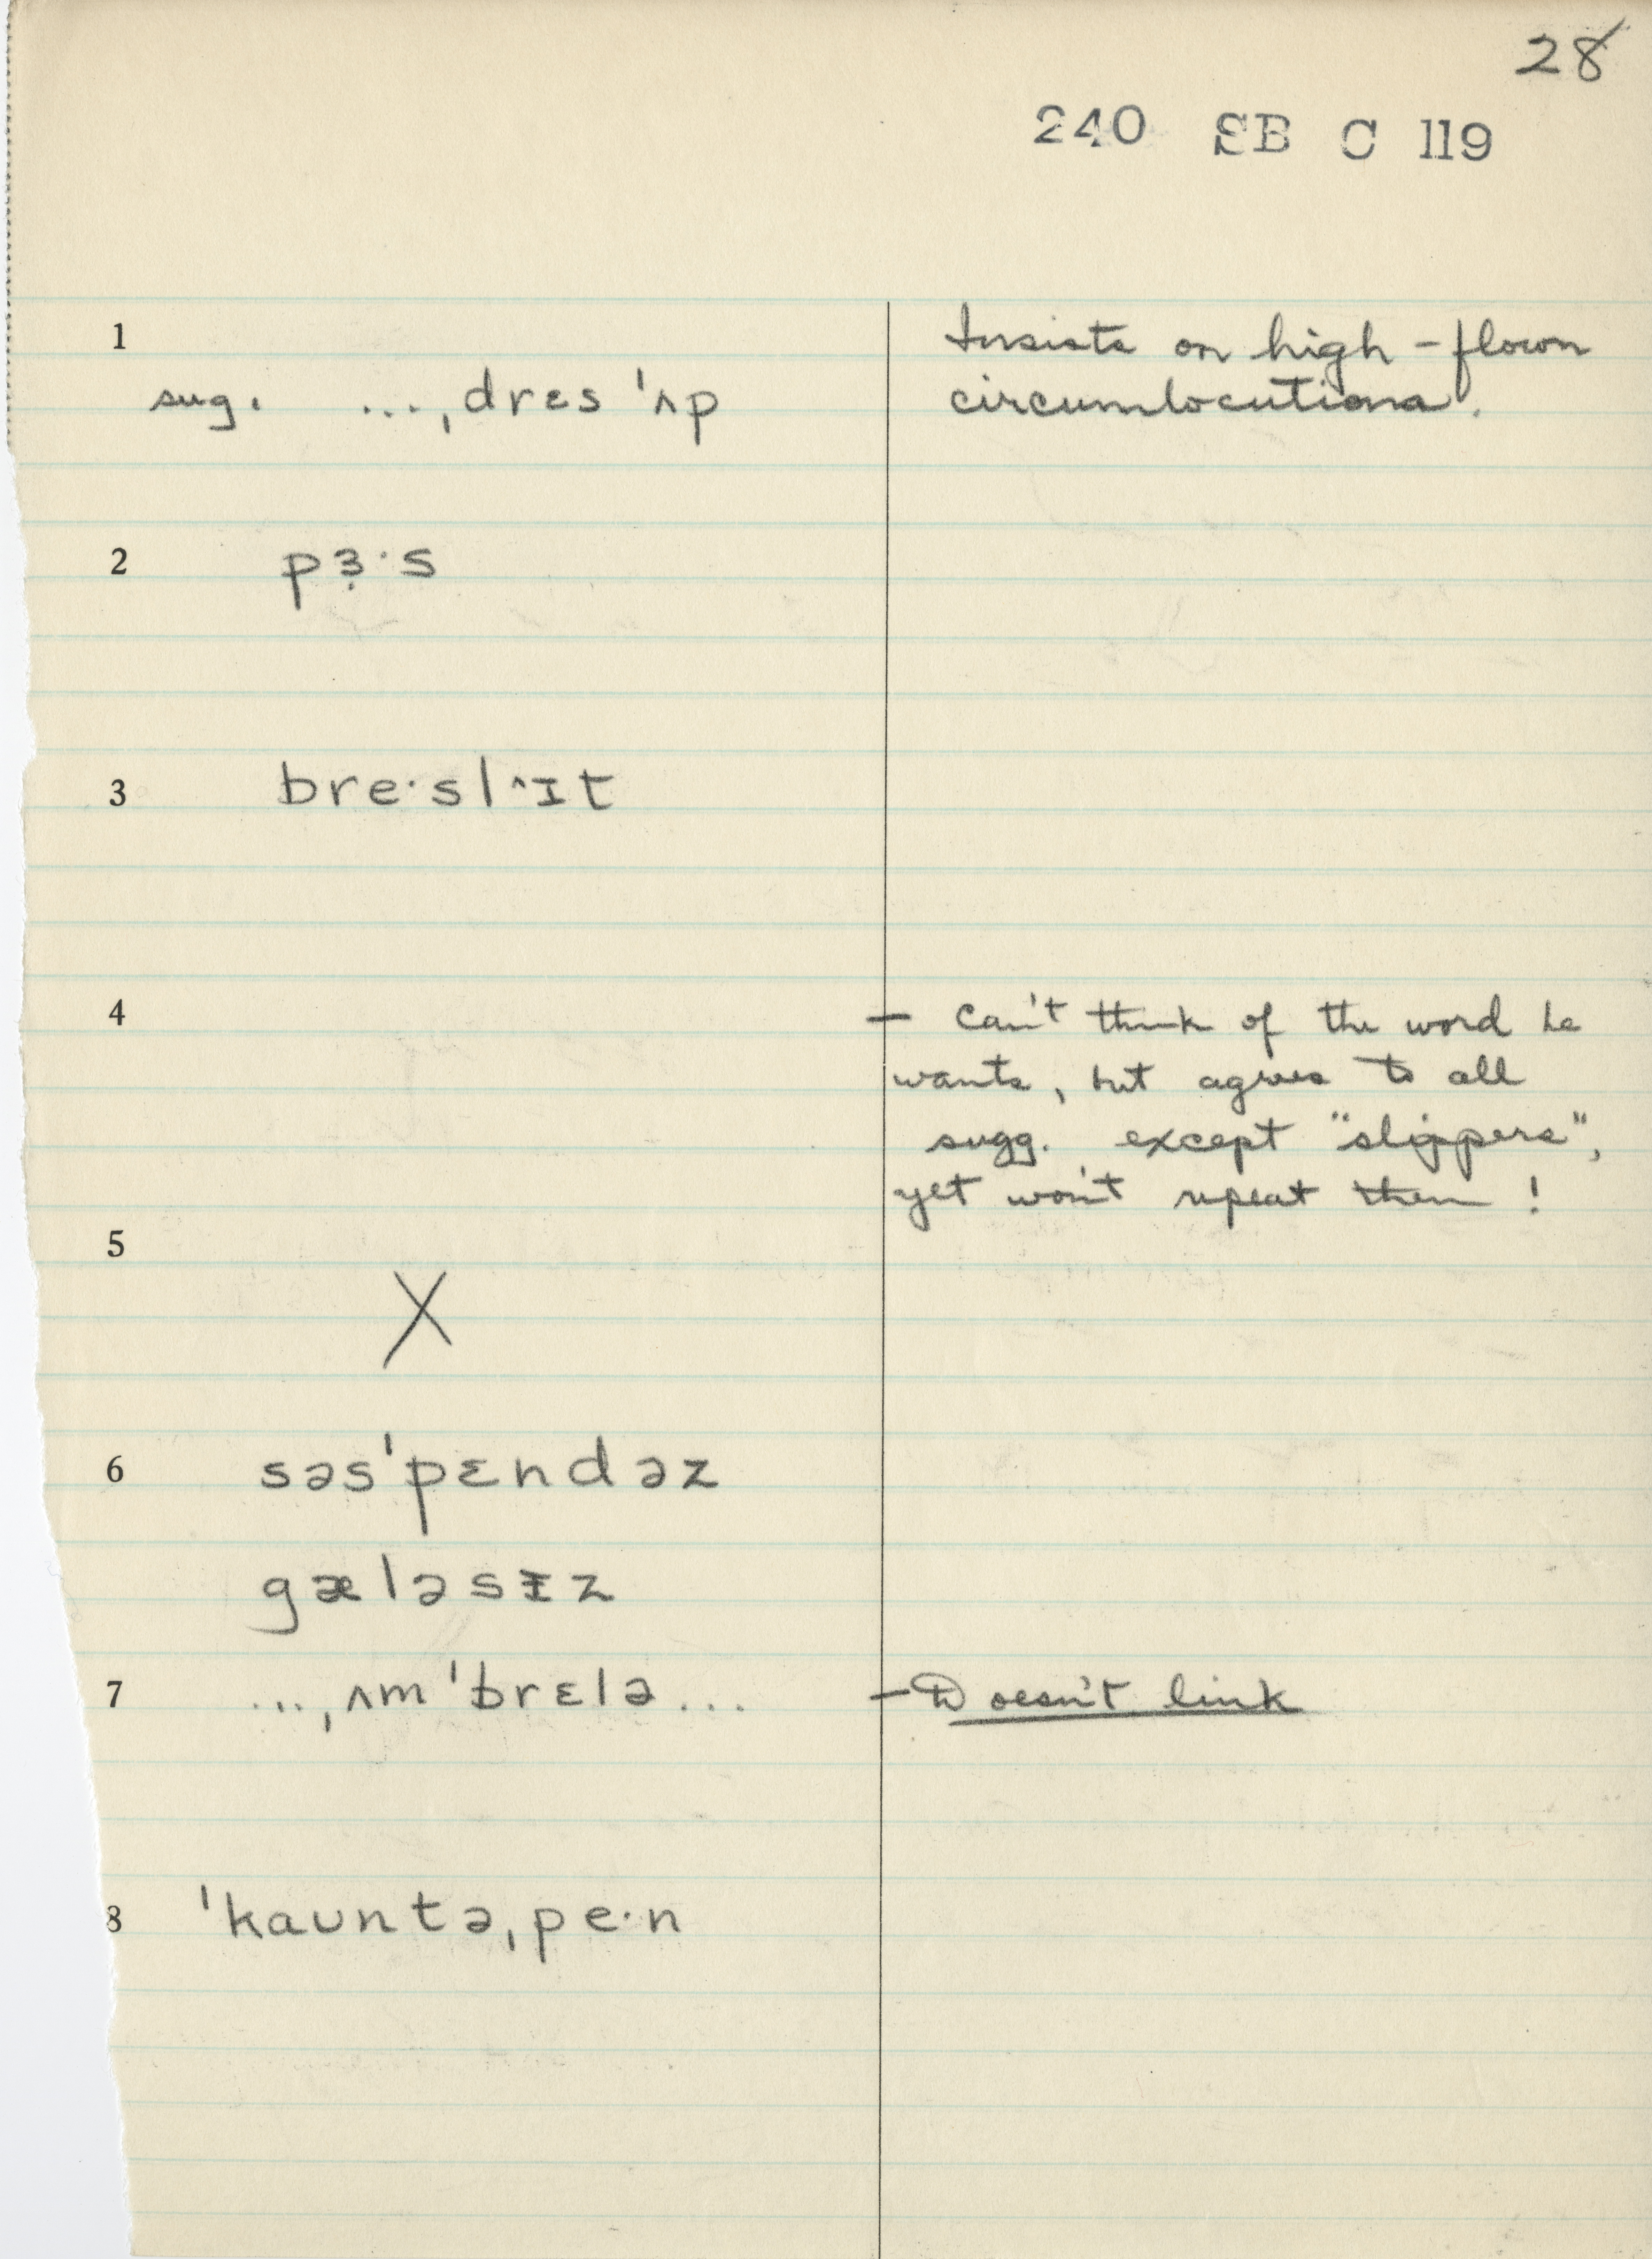 28
240 SB C 119
1 Insists on high-flown
sug. ...ˌdrɛs ˈʌp circumlocutions.
2 pɜ̣·s
3 bre·sl^ɪt
4 – Can't think of the word he
wants, but agrees to all
sugg. except "slippers",
yet won't repeat them!
5
X
6 səsˈpɛndəz
gæləsɪz
7 ...ˌʌmˈbrɛlə... – Doesn't link
8 ˈkaʊntəˌpe·n